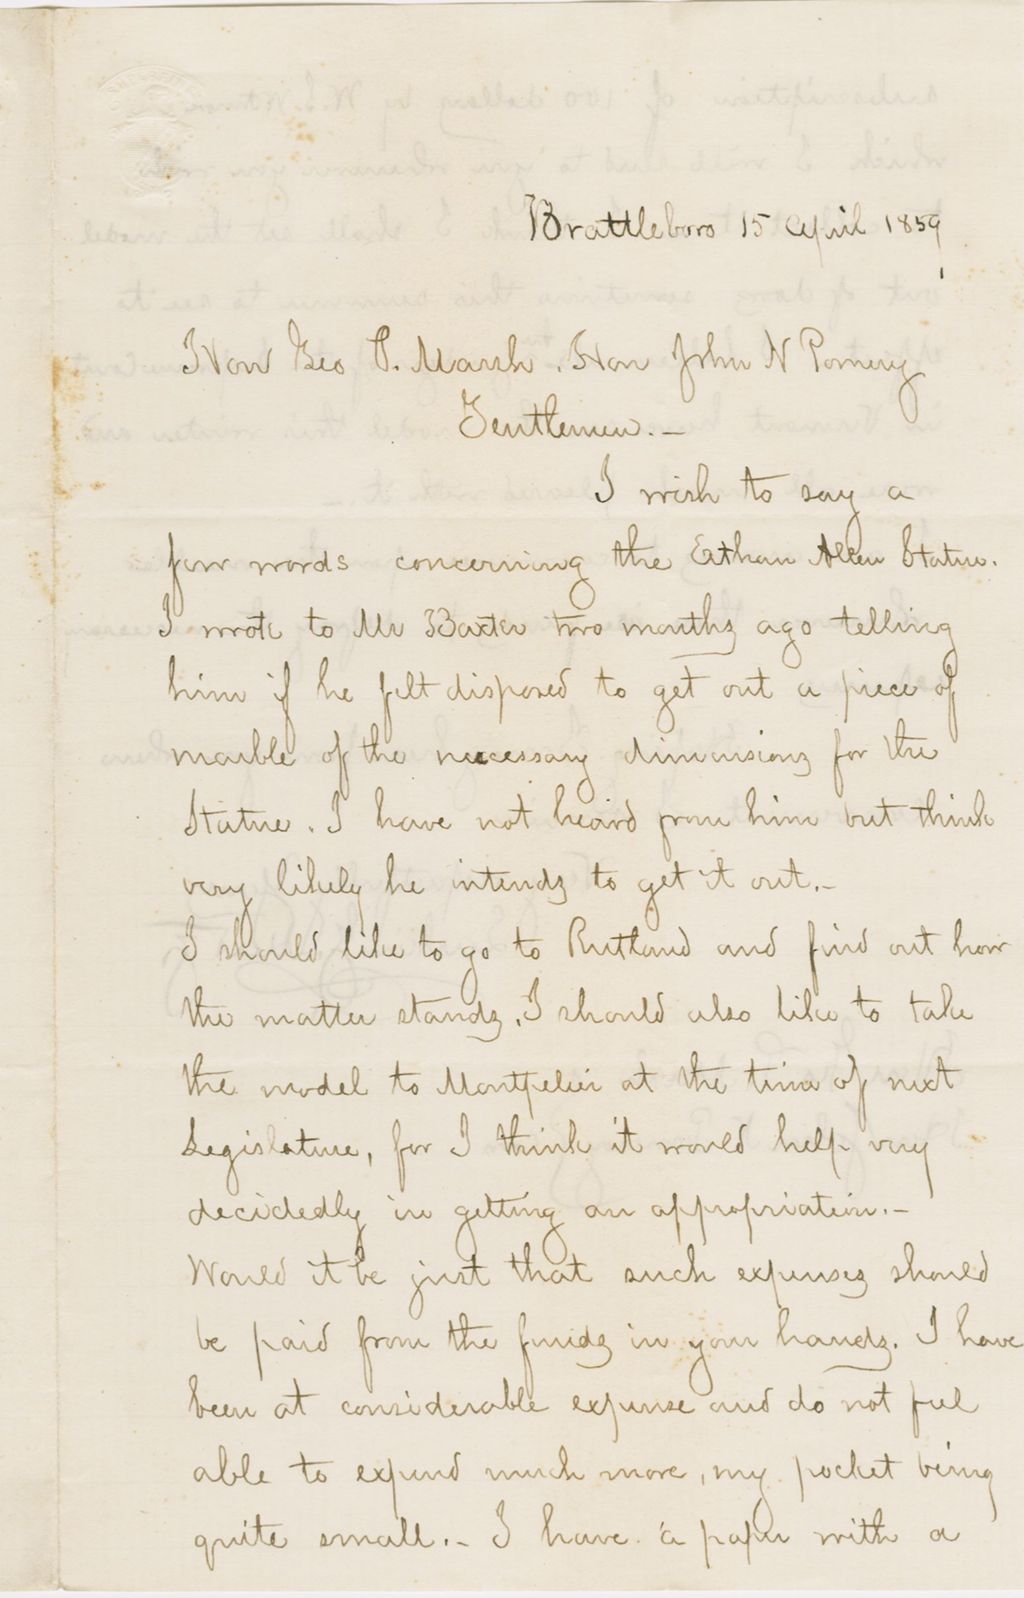 Brattleboro 15 April 1859
Hon Geo P. Marsh. Hon John N Pomeroy
Gentlemen. —
I wish to say a
few words concerning the Eathan Allen Statue.
I wrote to Mr Baxter two months ago telling
him if he felt disposed to get out a piece of
marble of the necessary dimensions for the
Statue. I have not heard from him but think
very likely he intends to get it out. —
I should like to go to Rutland and find out how
the matter stands. I should also like to take
the model to Montpelier at the time of next
Legislature, for I think it would help very
decidedly in getting an appropriation. —
Would it be just that such expenses should
be paid from the funds in your hands. I have
been at considerable expense and do not feel
able to expend much more, my pocket being
quite small. — I have a paper with a